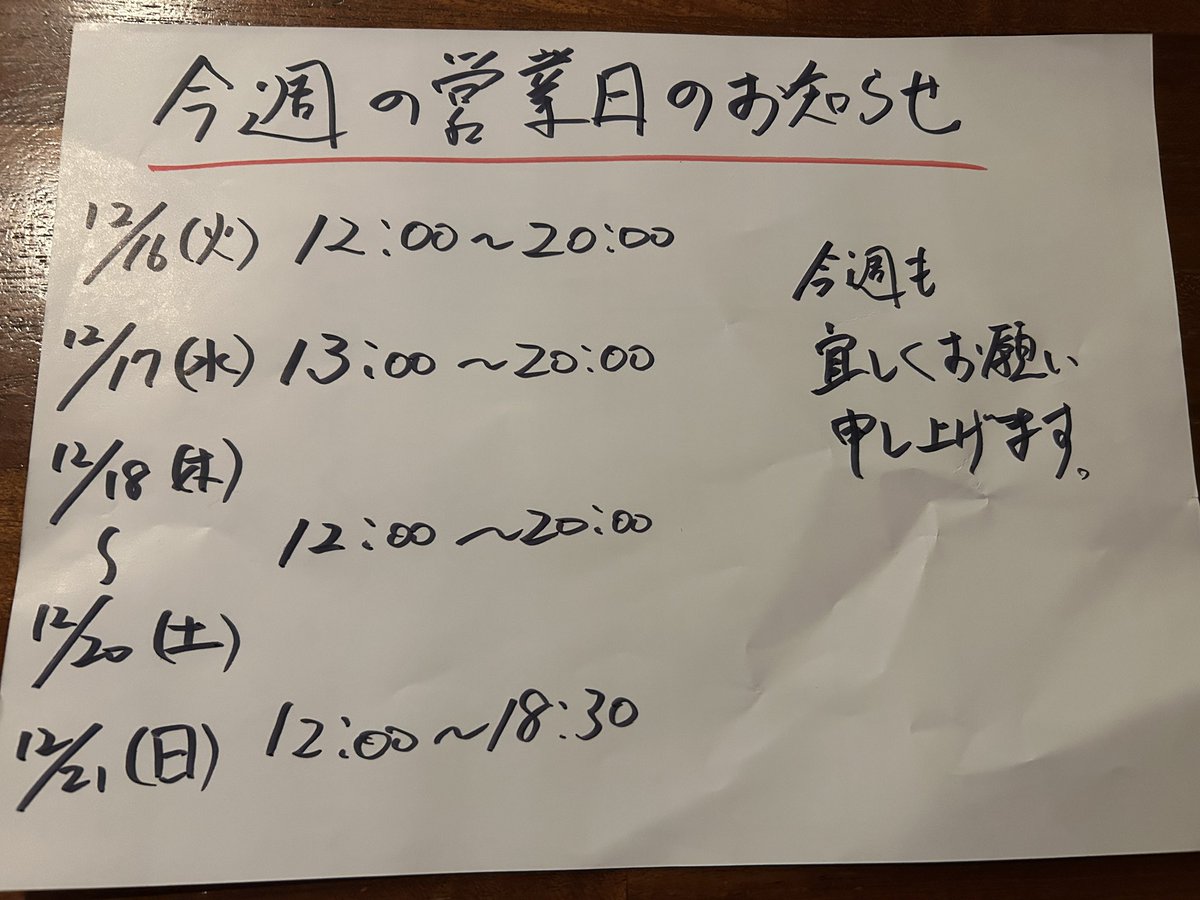 今週の営業日のお知らせ
12/16(火) 12:00~20:00
12/17(水) 13:00~20:00
12/18(木)
~ 12:00~20:00
12/20(土)
12/21(日) 12:00~18:30
今週も
宜しくお願い
申し上げます。